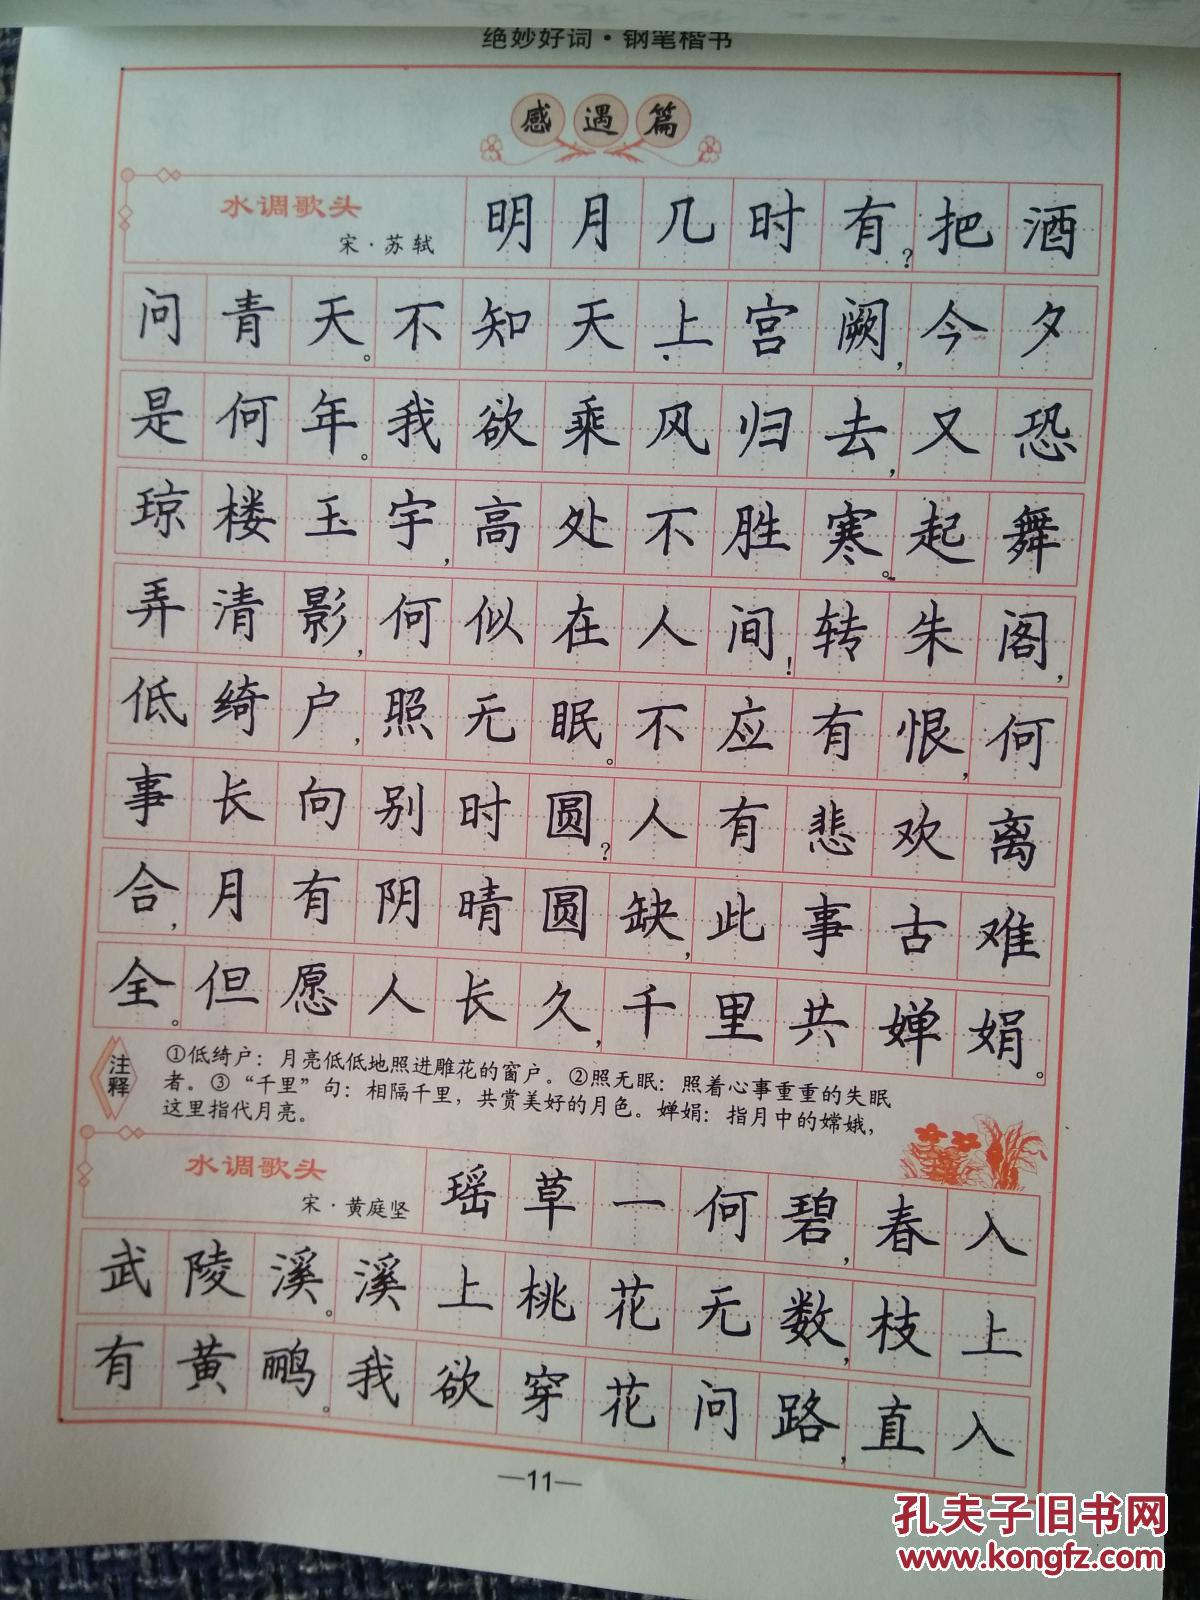 绝妙好词·钢笔楷书
感遇篇
水调歌头
宋·苏轼
明月几时有?把酒
问青天。不知天上宫阙,今夕
是何年。我欲乘风归去,又恐
琼楼玉宇,高处不胜寒。起舞
弄清影,何似在人间!转朱阁,
低绮户,照无眠。不应有恨,何
事长向别时圆?人有悲欢离
合,月有阴晴圆缺,此事古难
全。但愿人长久,千里共婵娟。
注释
①低绮户：月亮低低地照进雕花的窗户。②照无眠：照着心事重重的失眠
者。③“千里”句：相隔千里，共赏美好的月色。婵娟：指月中的嫦娥，
这里指代月亮。
水调歌头
宋·黄庭坚
瑶草一何碧,春入
武陵溪。溪上桃花无数,枝上
有黄鹂。我欲穿花问路,直入
—11—
孔夫子旧书网
www.kongfz.com